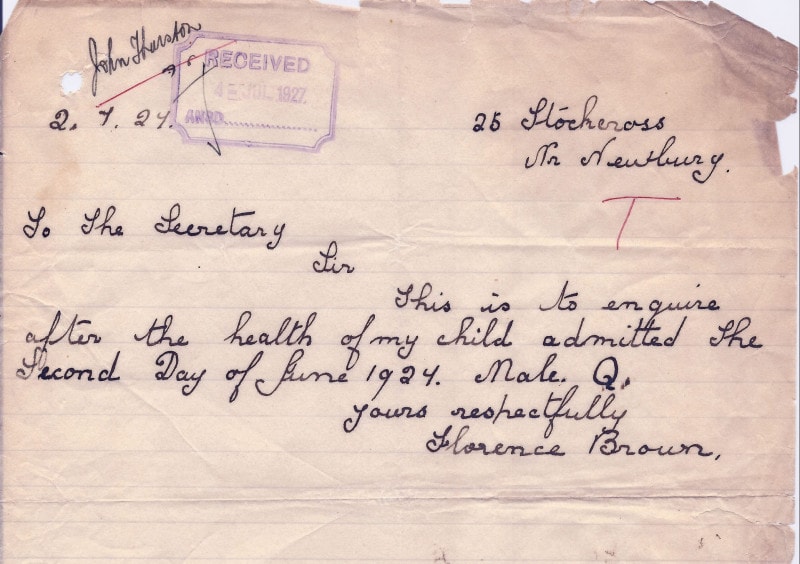 John Thurston
RECEIVED
4 JUL 1927
ANSD.
2. 7. 27.
25 Stockcross
Nr Newbury.
T
To The Secretary
Sir
This is to enquire
after the health of my child admitted The
Second Day of June 1927. Male. Q.
Yours respectfully
Florence Brown.